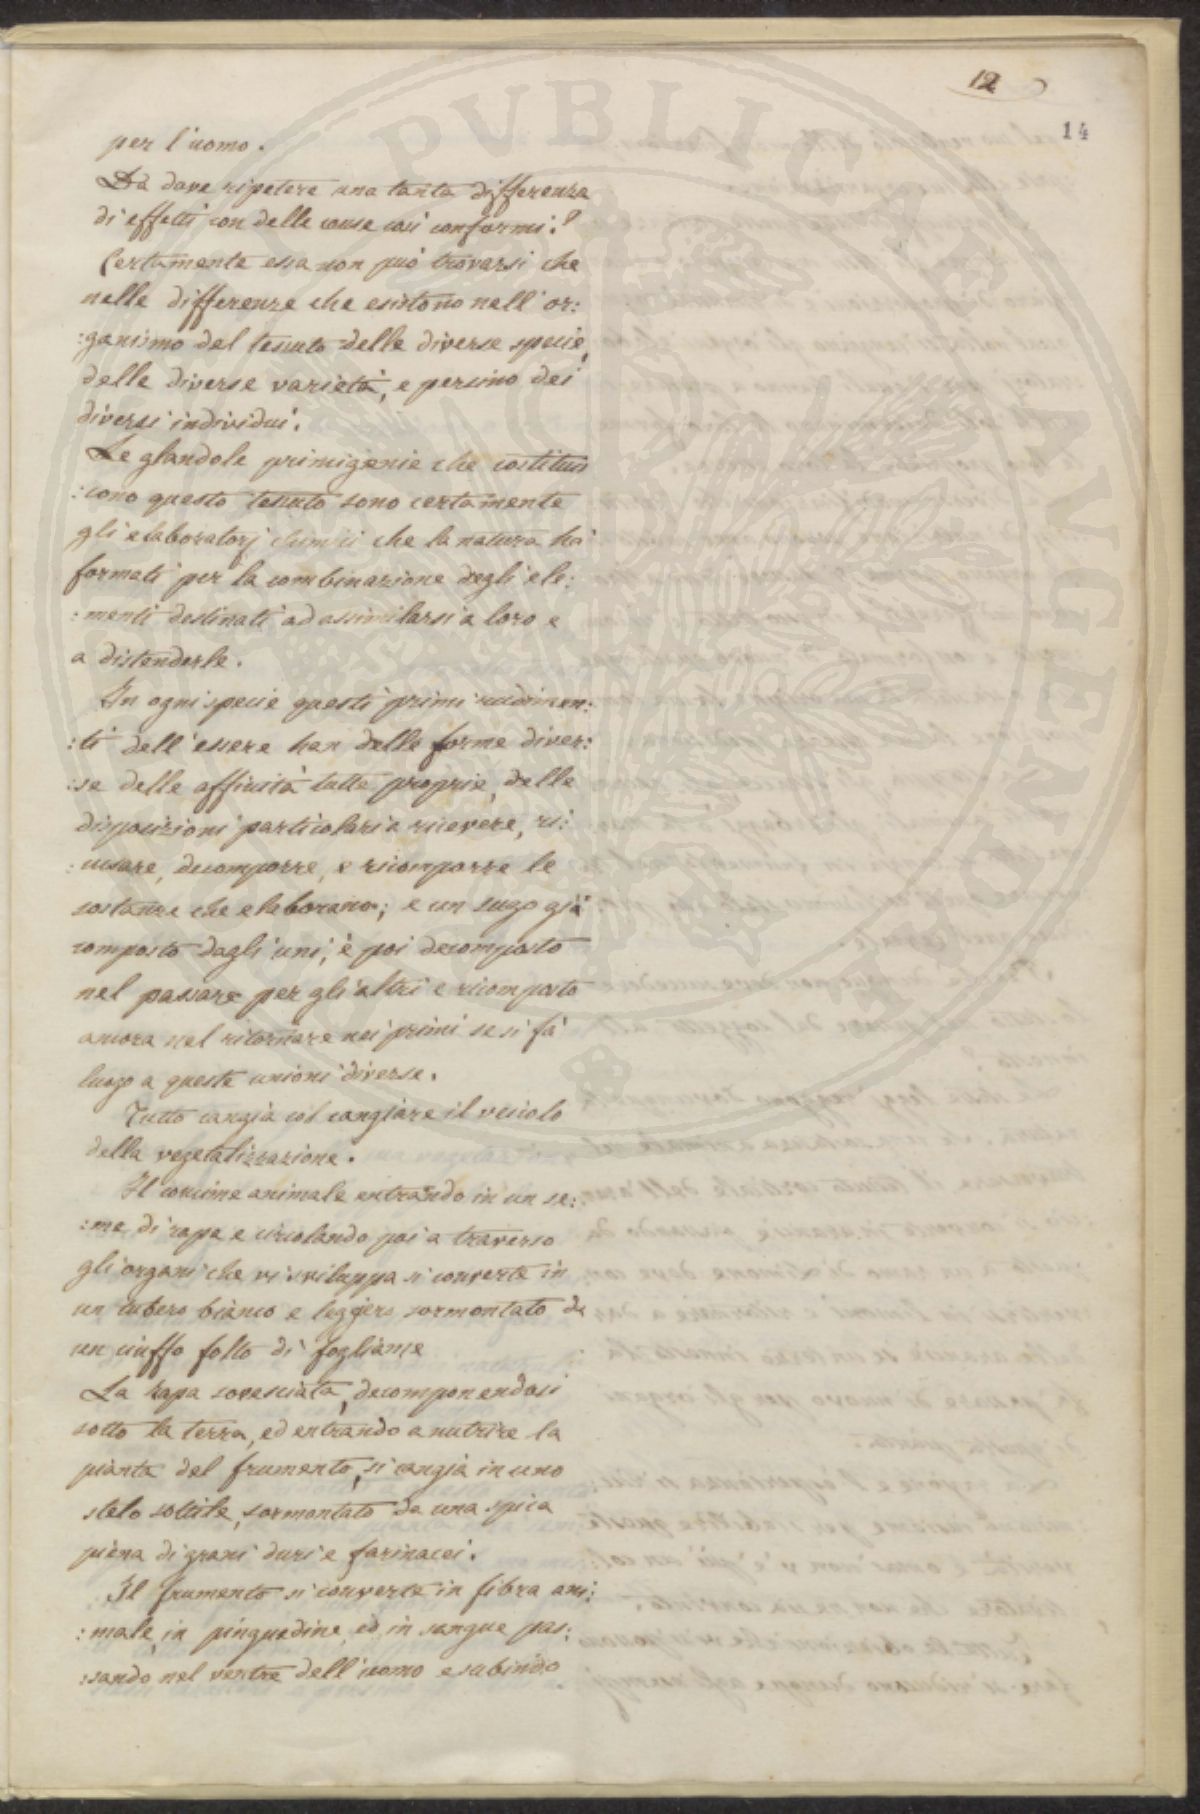 12
14
per l'uomo.
Da dove ripetere una tanta differenza
di effetti con delle cause così conformi?
Certamente essa non può trovarsi che
nelle differenze che esistono nell'or:
:ganismo del tessuto delle diverse specie,
delle diverse varietà, e persino dei
diversi individui.
Le glandole primigenie che costitus
:cono questo tessuto sono certamente
gli elaboratorj chimici che la natura ha
formati per la combinazione degli ele:
:menti destinati ad assimilarsi a loro e
a distenderle.
In ogni specie questi primi rudimen:
:ti dell'essere han delle forme diver:
:se delle affinità tutte proprie, delle
disposizioni particolari a ricevere, ri:
:cusare, decomporre, e ricomporre le
sostanze che elaborano; e un sugo già
composto dagli uni, è poi decomposto
nel passare per gli altri e ricomposto
ancora nel ritornare nei primi se si fà
luogo a queste unioni diverse.
Tutto cangia col cangiare il veicolo
della vegetalizzazione.
Il concime animale entrando in un se:
:me di rapa e circolando poi a traverso
gli organi che vi sviluppa si converte in
un tubero bianco e leggiero sormontato da
un ciuffo folto di fogliame
La rapa sovesciata, decomponendosi
sotto la terra, ed entrando a nutrire la
pianta del frumento, si cangia in uno
stelo sottile, sormontato da una spica
piena di grani duri e farinacei.
Il frumento si converte in fibra ani:
:male, in pinguedine, ed in sangue pas:
:sando nel ventre dell'uomo e subindo
PUBLICAE AVGENDAE